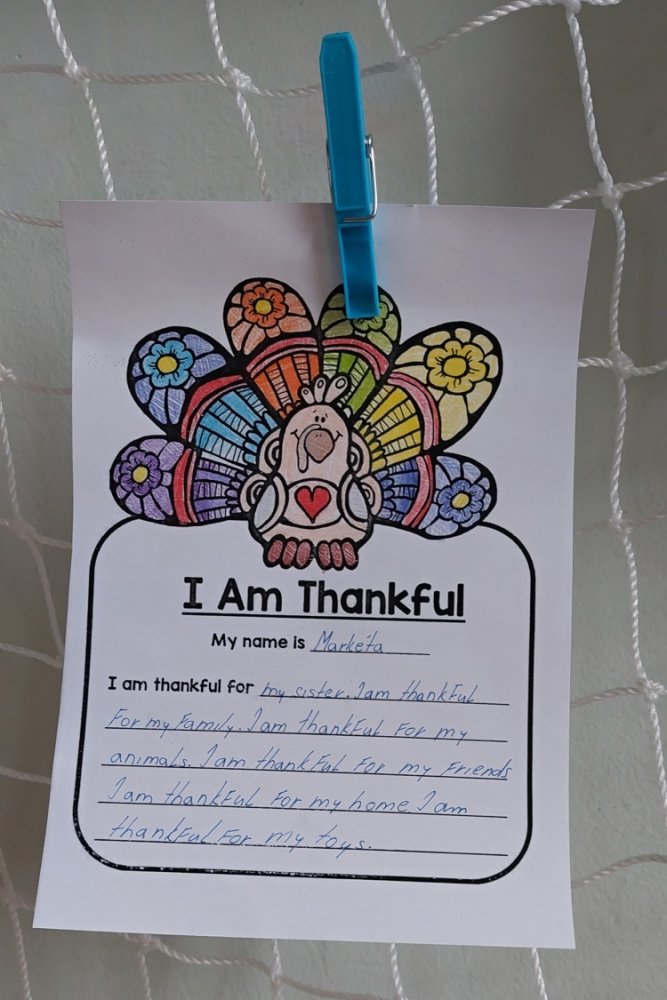 I Am Thankful
My name is Markéta
I am thankful for my sister. I am thankful
for my family. I am thankful for my
animals. I am thankful for my friends
I am thankful for my home. I am
thankful for my toys.